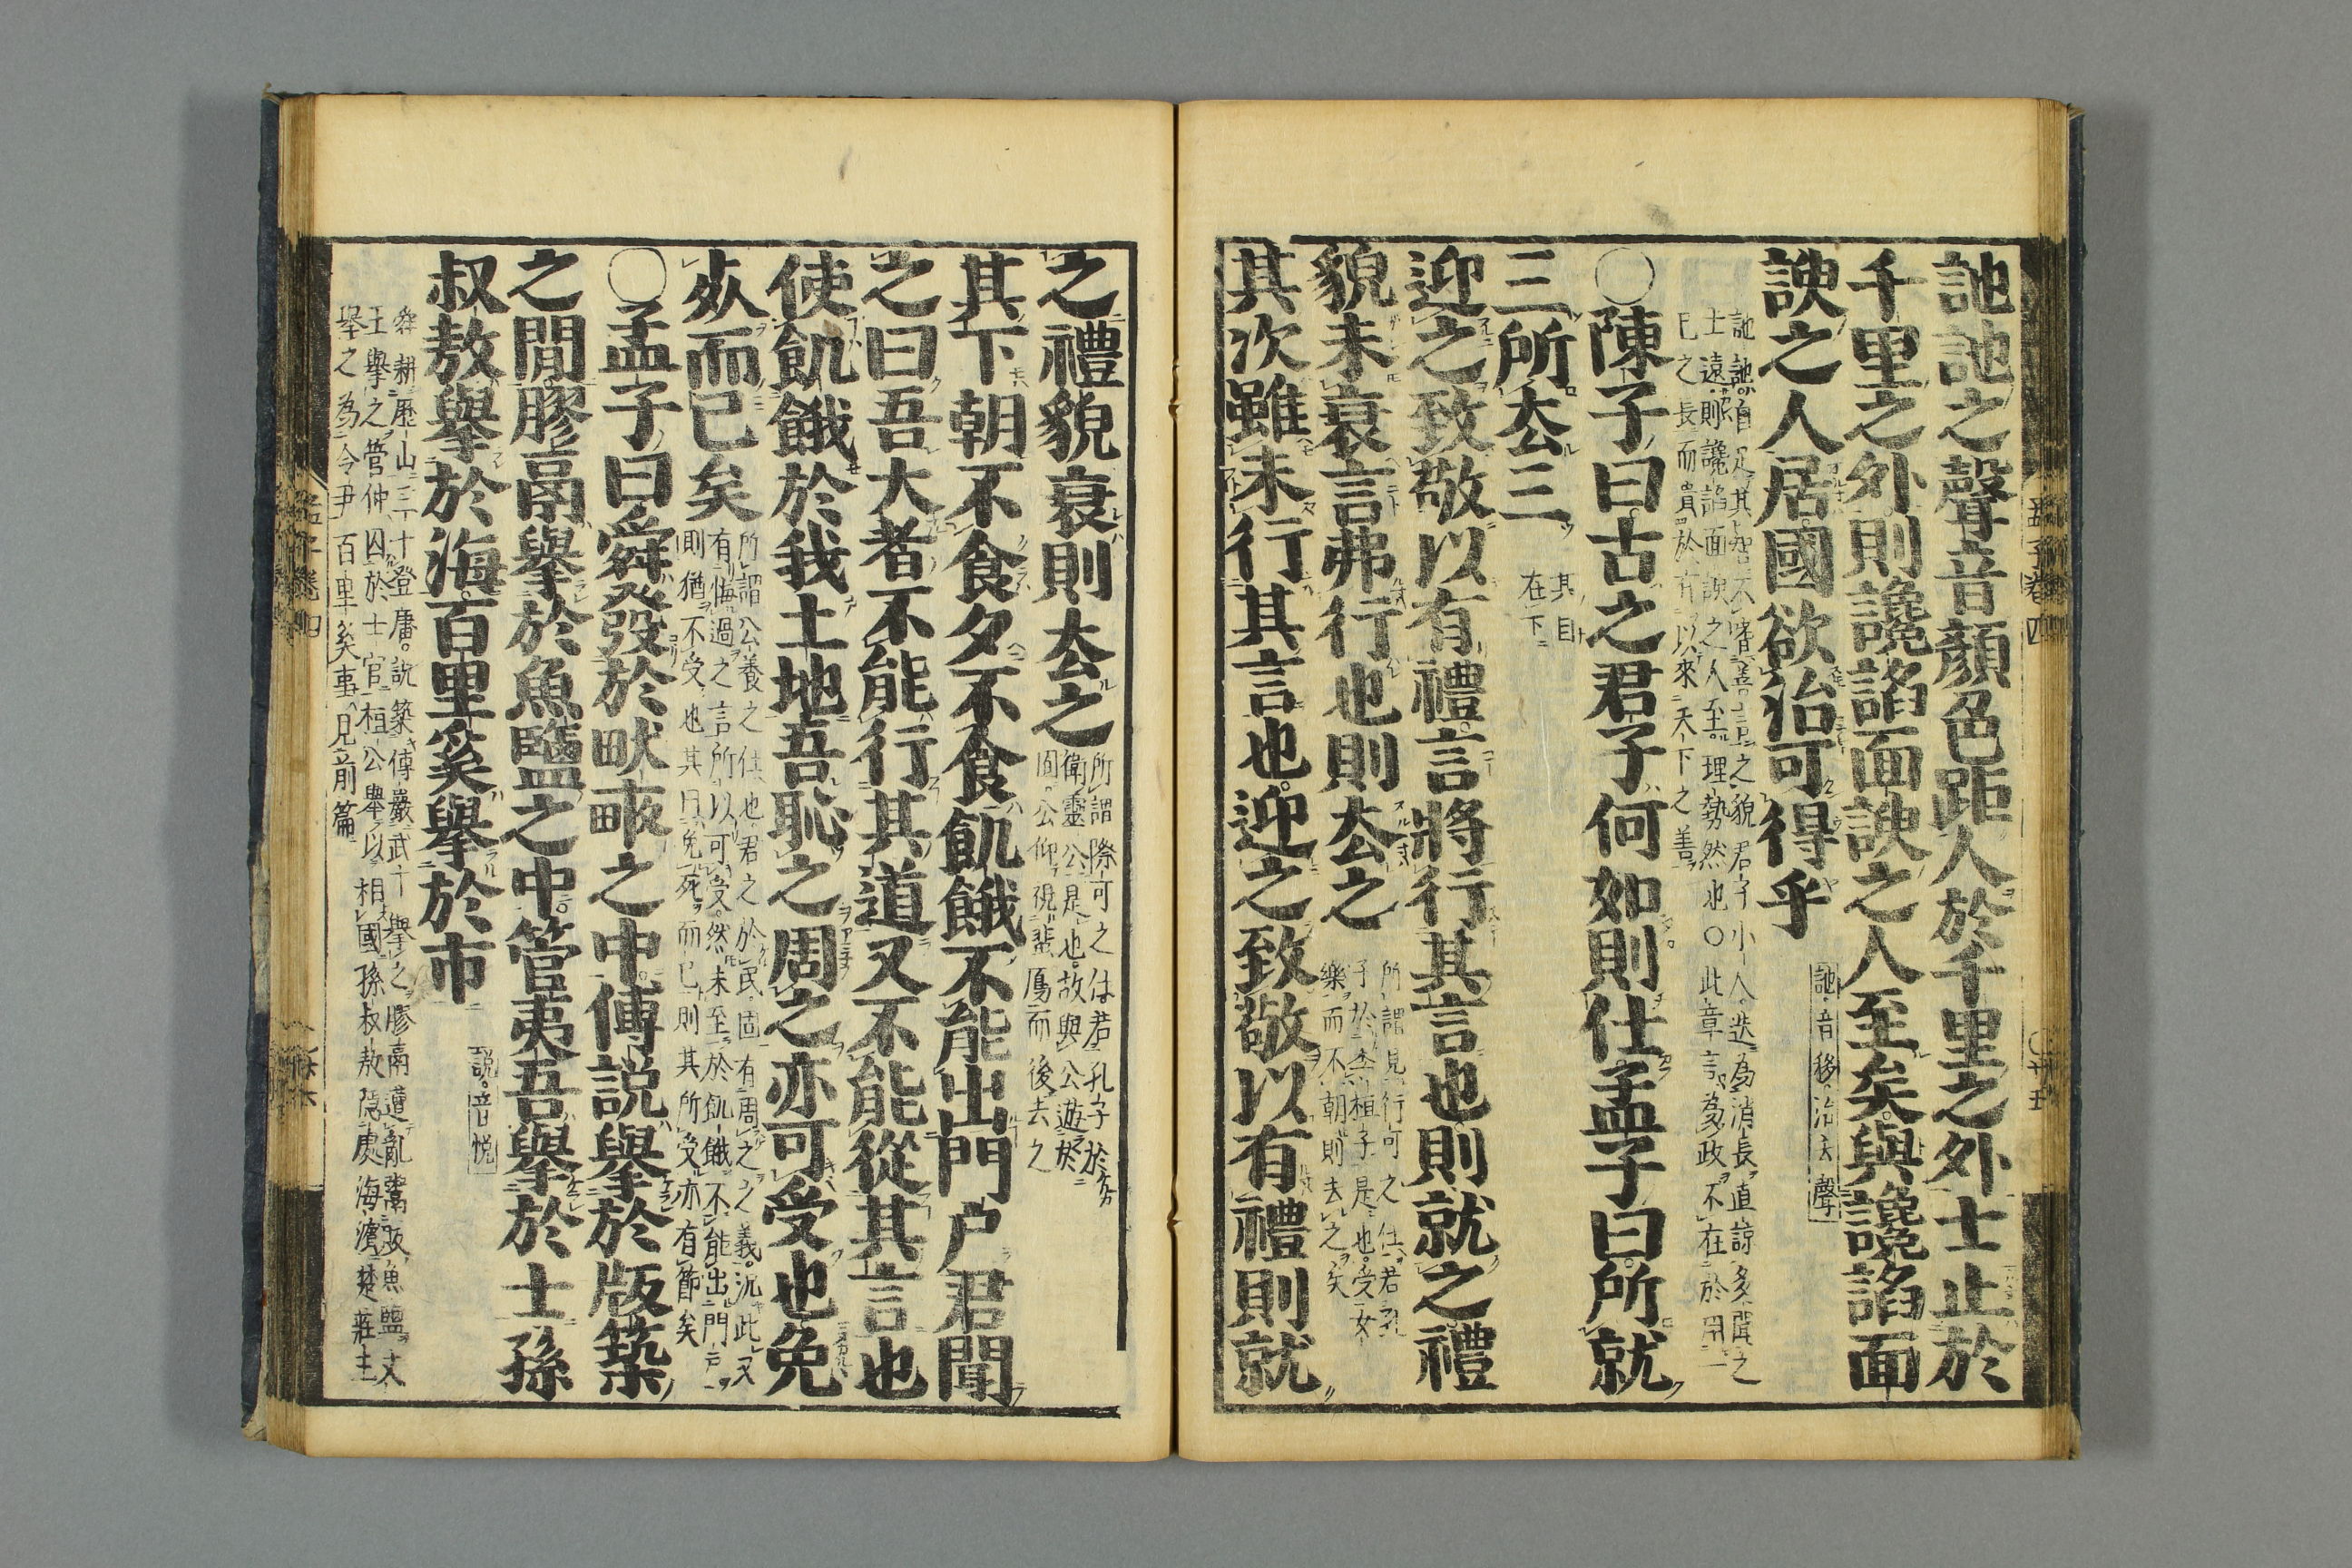 訑訑之聲音顔色距人於千里之外士止於
千里之外則讒諂面諛之人至矣與讒諂面
諛之人居國欲治可得乎
訑音移治去聲
訑訑自足其智不嗜善言之貌君子小人迭為消長直諒多聞之
士遠則讒諂面諛之人至理勢然也○此章言為政不在於用一
已之長而貴於有以來天下之善
○陳子曰古之君子何如則仕孟子曰所就
三所去三
其目
在下
迎之致敬以有禮言將行其言也則就之禮
貌未衰言弗行也則去之
所謂見行可之仕若孔
子於季桓子是也受女
樂而不朝則去之矣
其次雖未行其言也迎之致敬以有禮則就
孟子卷四
之禮貌衰則去之
所謂際可之仕若孔子於
衛靈公是也故與公遊於
囿公仰視蜚鴈而後去之
其下朝不食夕不食飢餓不能出門户君聞
之曰吾大者不能行其道又不能從其言也
使飢餓於我土地吾恥之周之亦可受也免
死而已矣
所謂公養之仕也君之於民固有周之之義況此又
有悔過之言所以可受然未至於飢餓不能出門户
則猶不受也其曰免死而已則其所受亦有節矣
○孟子曰舜發於畎畝之中傅説舉於版築
之閒膠鬲舉於魚鹽之中管夷吾舉於士孫
叔敖舉於海百里奚舉於市
説音悦
舜耕歷山三十登庸説築傅巖武丁舉之膠鬲遭亂鬻販魚鹽文
王舉之管仲囚於士官桓公舉以相國孫叔敖隠處海濱楚莊王
舉之為令尹百里奚事見前篇